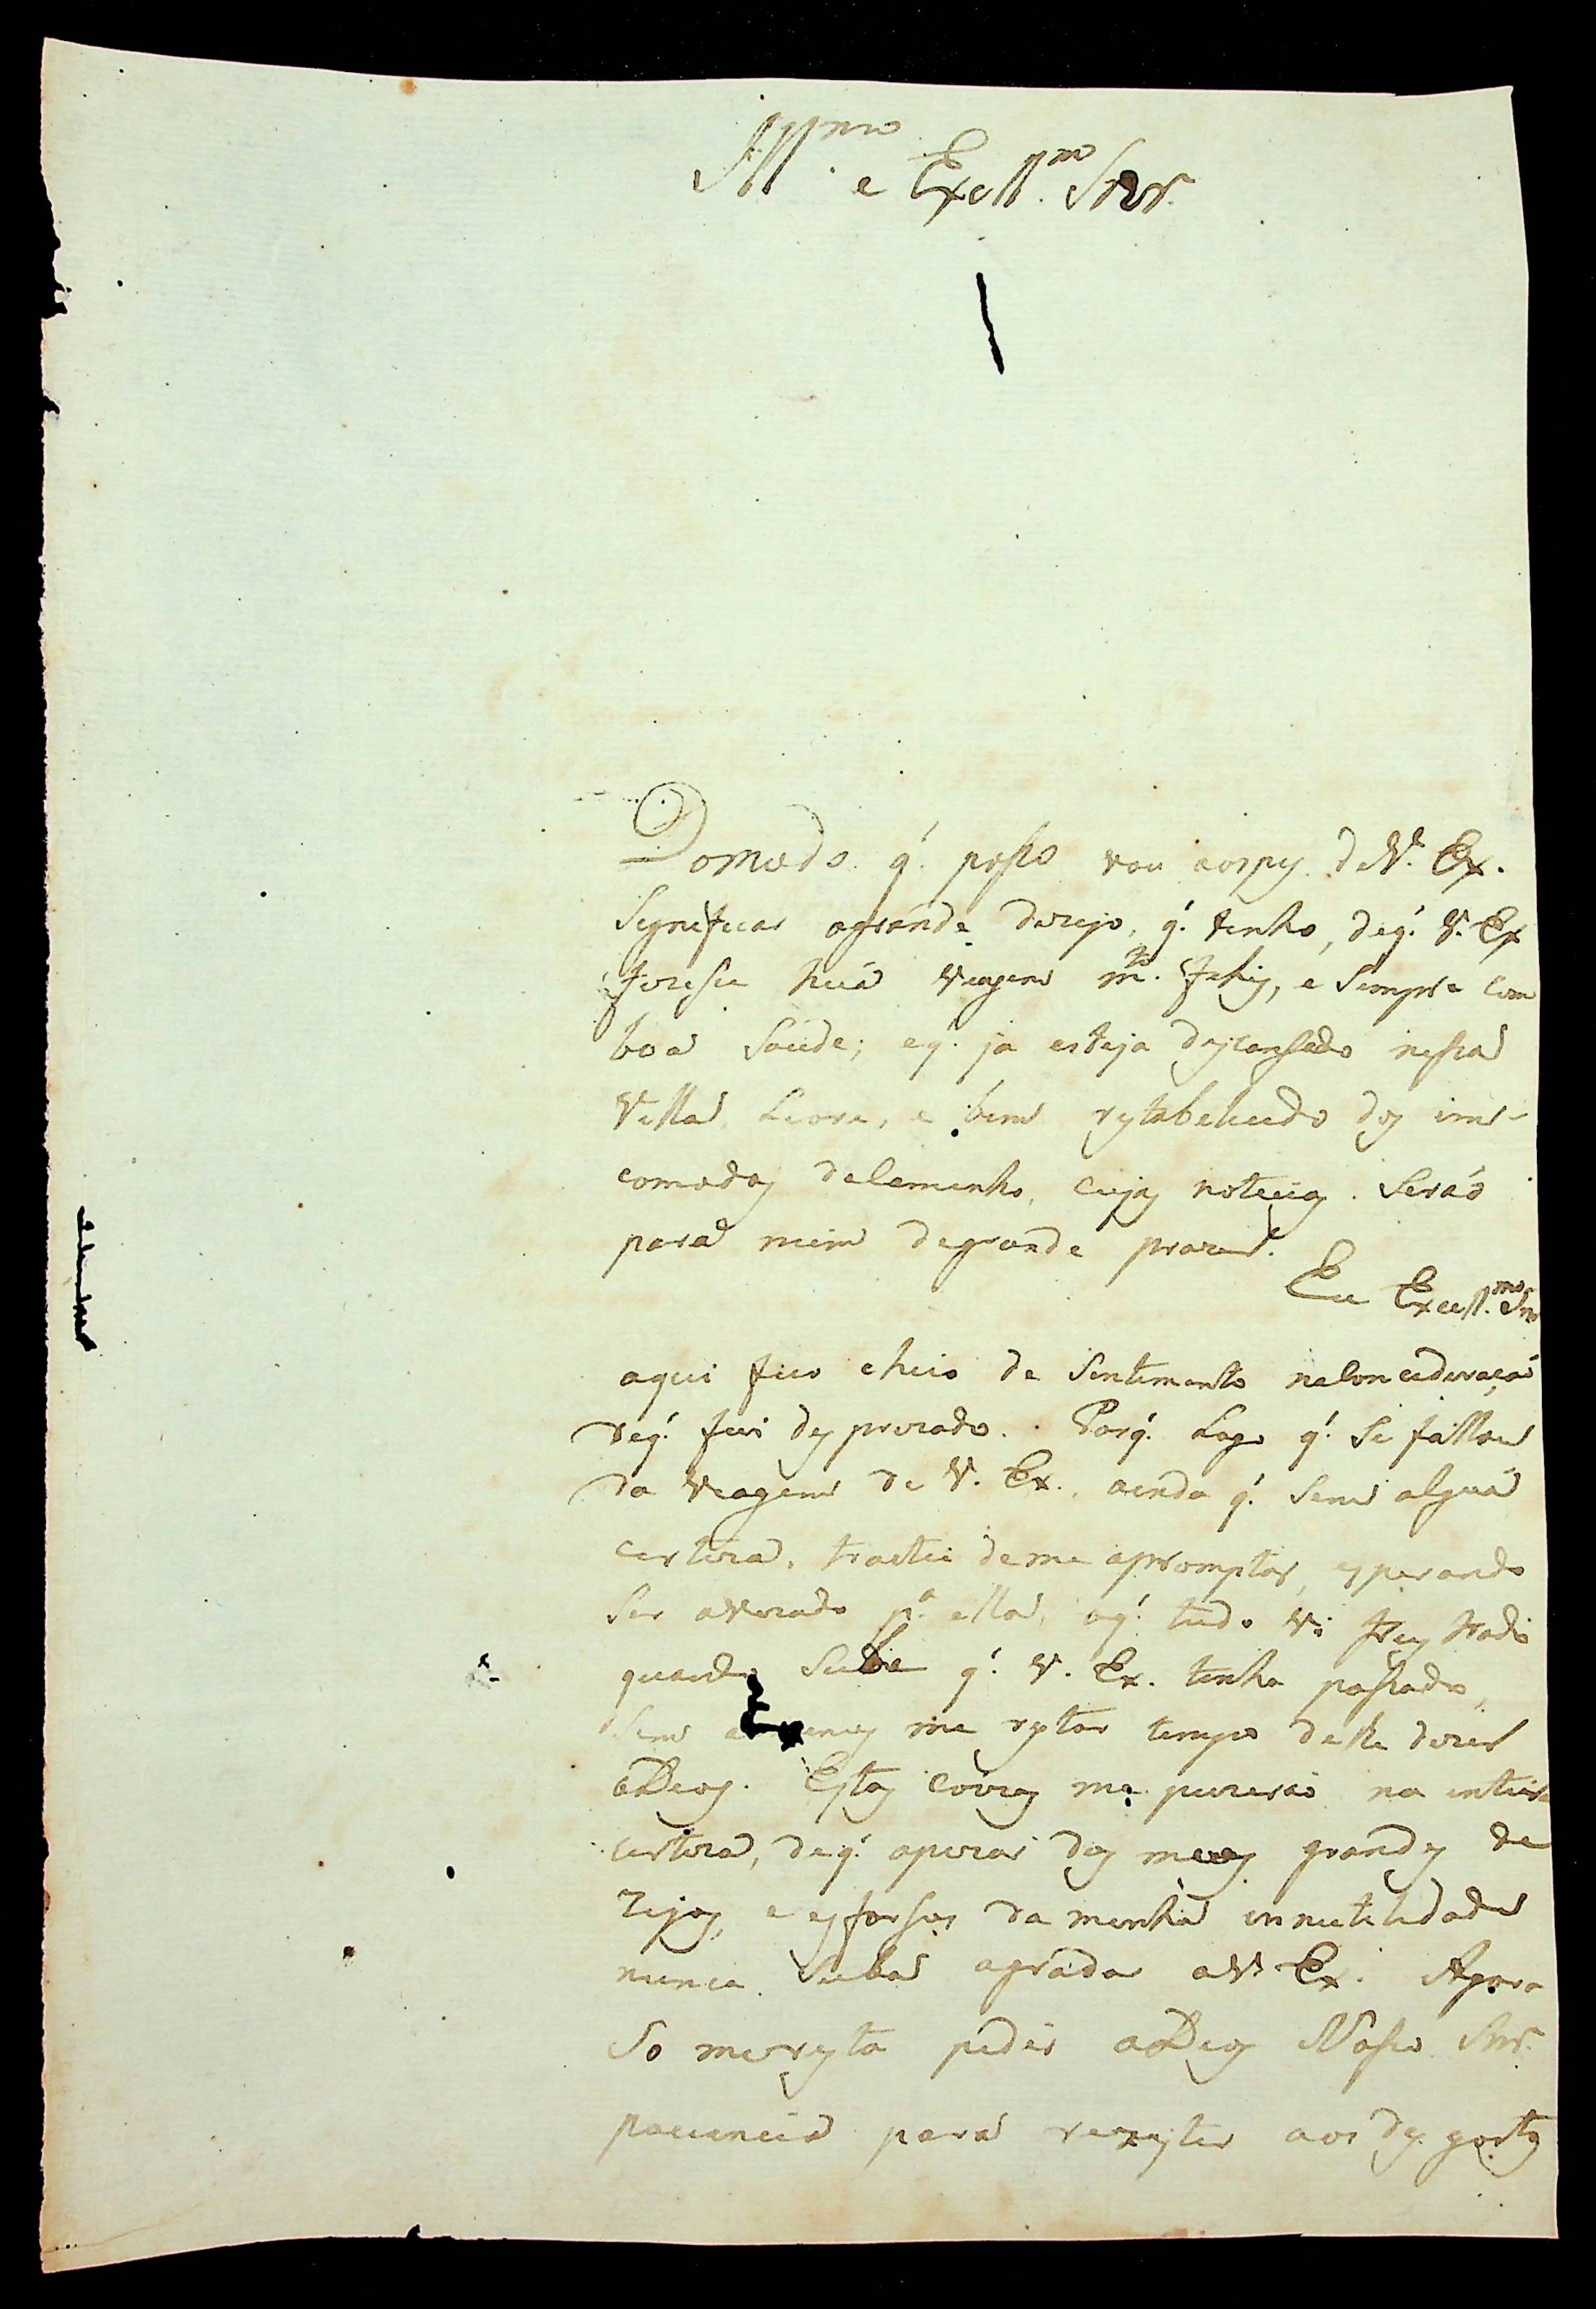 Ill.mo e Excell.mo Snr.
Do modo q'. posso vou aos pes de V. Ex.
Segneficar agrande dezejo, q'. tenho, deq'. V. Ex
fizesse huá veagem m.to felis, e sempre com
boa saúde; eq'. ja esteja descansado nessa
Vella, e bem restabelecido dos im-
comodos delaminho, cujas noteçias. Seráo
para mim degrande prazer.
Eu Excell.mo Snr
aqui fico cheio de sentemento naConcederaçaó
deq'. fui desprezado. Porq'. Logo q'. se fallou
da veagem de V. Ex., aenda q'. sem alguá
certeza, tractei deme apromptar, esperando
ser avezado p.a ella, oq'. tudo vi frustrado
quando Sube q'. V. Ex. tenha passado,
sem me restar tempo delhe dezer
aDeos. Estas coizas me puzeráo na enteira
certeza, deq'. apezar dos meos grandes de
zejos, e esforsos da menha innutelidade
nunca sube agradar aV. Ex. Agora
So meresta pedir aDeos Nosso Snr.
paciencia para rezester aos desgostos